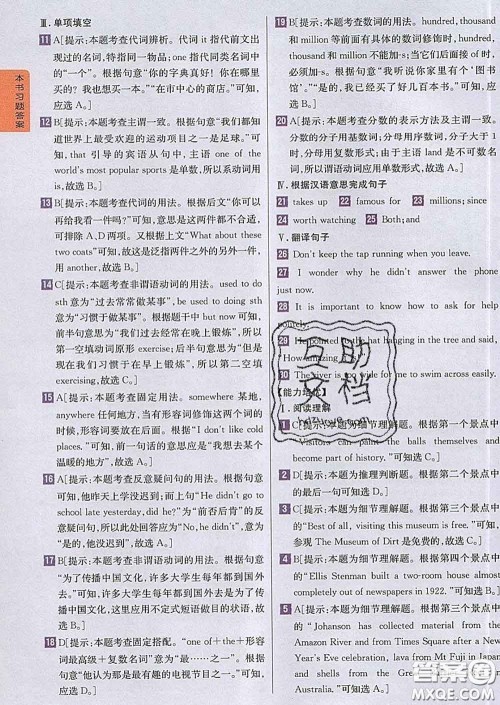 本书习题答案
Ⅲ. 单项填空
11 A[提示:本题考查代词辨析。代词 it 指代前文出
现过的名词,特指同一物品; one 指代同类名词中
的“一个”。根据句意“你的字典真好!你在哪里
买的?我也想买一本。”“在市中心的商店。”可知,
应选 A。]
12 B[提示:本题考查主谓一致。根据句意“我们都知
道世界上最受欢迎的运动项目之一是足球。”可
知, that 引导的宾语从句中,主语 one of the
world's most popular sports 是单数,所以系动词用
is,故选 B。]
13 B[提示:本题考查代词的用法。根据后文“你可以
再给我看一件吗?”可知,意思是这两件都不合适,
可排除 A、D 两项。又根据上文“What about these
two coats”可知,应是指两件之外的另外一件,
用 another,故选 B。]
14 C[提示:本题考查非谓语动词的用法。used to do
sth 意为“过去常常做某事”, be used to doing sth
意为“习惯于做某事”。根据题干中 but now 可知,
前半句意思为“我们过去经常在晚上锻炼”,所以
第一空填动词原形 exercise;后半句意思为“但是现
在我们习惯于在早上锻炼”,所以第二空填
exercising,故选 C。]
15 A[提示:本题考查固定用法。somewhere 某地,
anywhere 任何地方,当有形容词修饰这两个词的
时候,形容词要放在后面。根据“I don't like cold
places.”可知,前一句话的意思应是“我想去某个
温暖的地方”,故选 A。]
16 A[提示:本题考查反意疑问句的用法。根据句意
可知,他昨天上学没迟到;而这句“He didn't go to
school late yesterday, did he?”为“前否后肯”的反
意疑问句,所以此处回答应为“No, he didn't”,意为
“是的,他没迟到”,故选 A。]
17 B[提示:本题考查非谓语动词的用法。根据句意
“为了传播中国文化,许多大学生每年都到国外
去。”可知,许多大学生每年都到国外去是为了传
播中国文化,这里应用不定式短语做目的状语,故
选 B。]
18 D[提示:本题考查固定搭配。“one of+the+形容
词最高级+复数名词”意为“最……之一”。根据
句意“他认为那是最有趣的电视节目之一。”可知,
应选 D。]
19 B[提示:本题考查数词的用法。hundred, thousand
和 million 等前面有具体的数词修饰时, hundred,
thousand 和 million 不能加-s;当它们后面接 of 时,
必须加-s。根据句意“我听说你家里有个‘图书
馆’。”“是的,我已经买了好几百本书。”可知,
应选 B。]
20 A[提示:本题考查分数的表达方法及主谓一致。
分数的分子用基数词,分母用序数词,分子大于
1时,分母用复数形式;由于主语 land 是不可数名
词,所以谓语动词应用单数形式,故选 A。]
Ⅳ. 根据汉语意思完成句子
21 takes up 22 famous for 23 millions; since
24 worth watching 25 Both; and
Ⅴ. 翻译句子
26 Don't keep the tap running when you leave.
27 I wonder why he didn't answer the phone
just now.
28 It is important to know how to ask for help
politely.
29 He pointed to the hat hanging in the tree and said,
“How amazing it is!”
30 The river is too wide for me to swim across easily.
【能力培优】
Ⅰ. 阅读理解
1 C[提示:本题为细节理解题。根据第一个景点中
“Visitors can paint the balls themselves and
become part of history.”可知选 C。]
2 D[提示:本题为推理判断题。根据第一个景点中
的最后一句可知选 D。]
3 C[提示:本题为细节理解题。根据第二个景点中
的“Best of all, visiting this museum is free.”可知,
参观 Museum of Dirt 是免费的,故选 C。]
4 B[提示:本题为细节理解题。根据第四个景点中
的“Ellis Stenman built a two-room house almost
completely out of newspapers in 1922.”可知选 B。]
5 A[提示:本题为细节理解题。根据第三个景点中
的“Johanson has collected material from the
Amazon River and from Times Square after a New
Year's Eve celebration, lava from Mt Fuji in Japan
and dirt from the Great Gardens in
Australia.”可知选 A。]
互助文档
答案圈
MXQE.COM